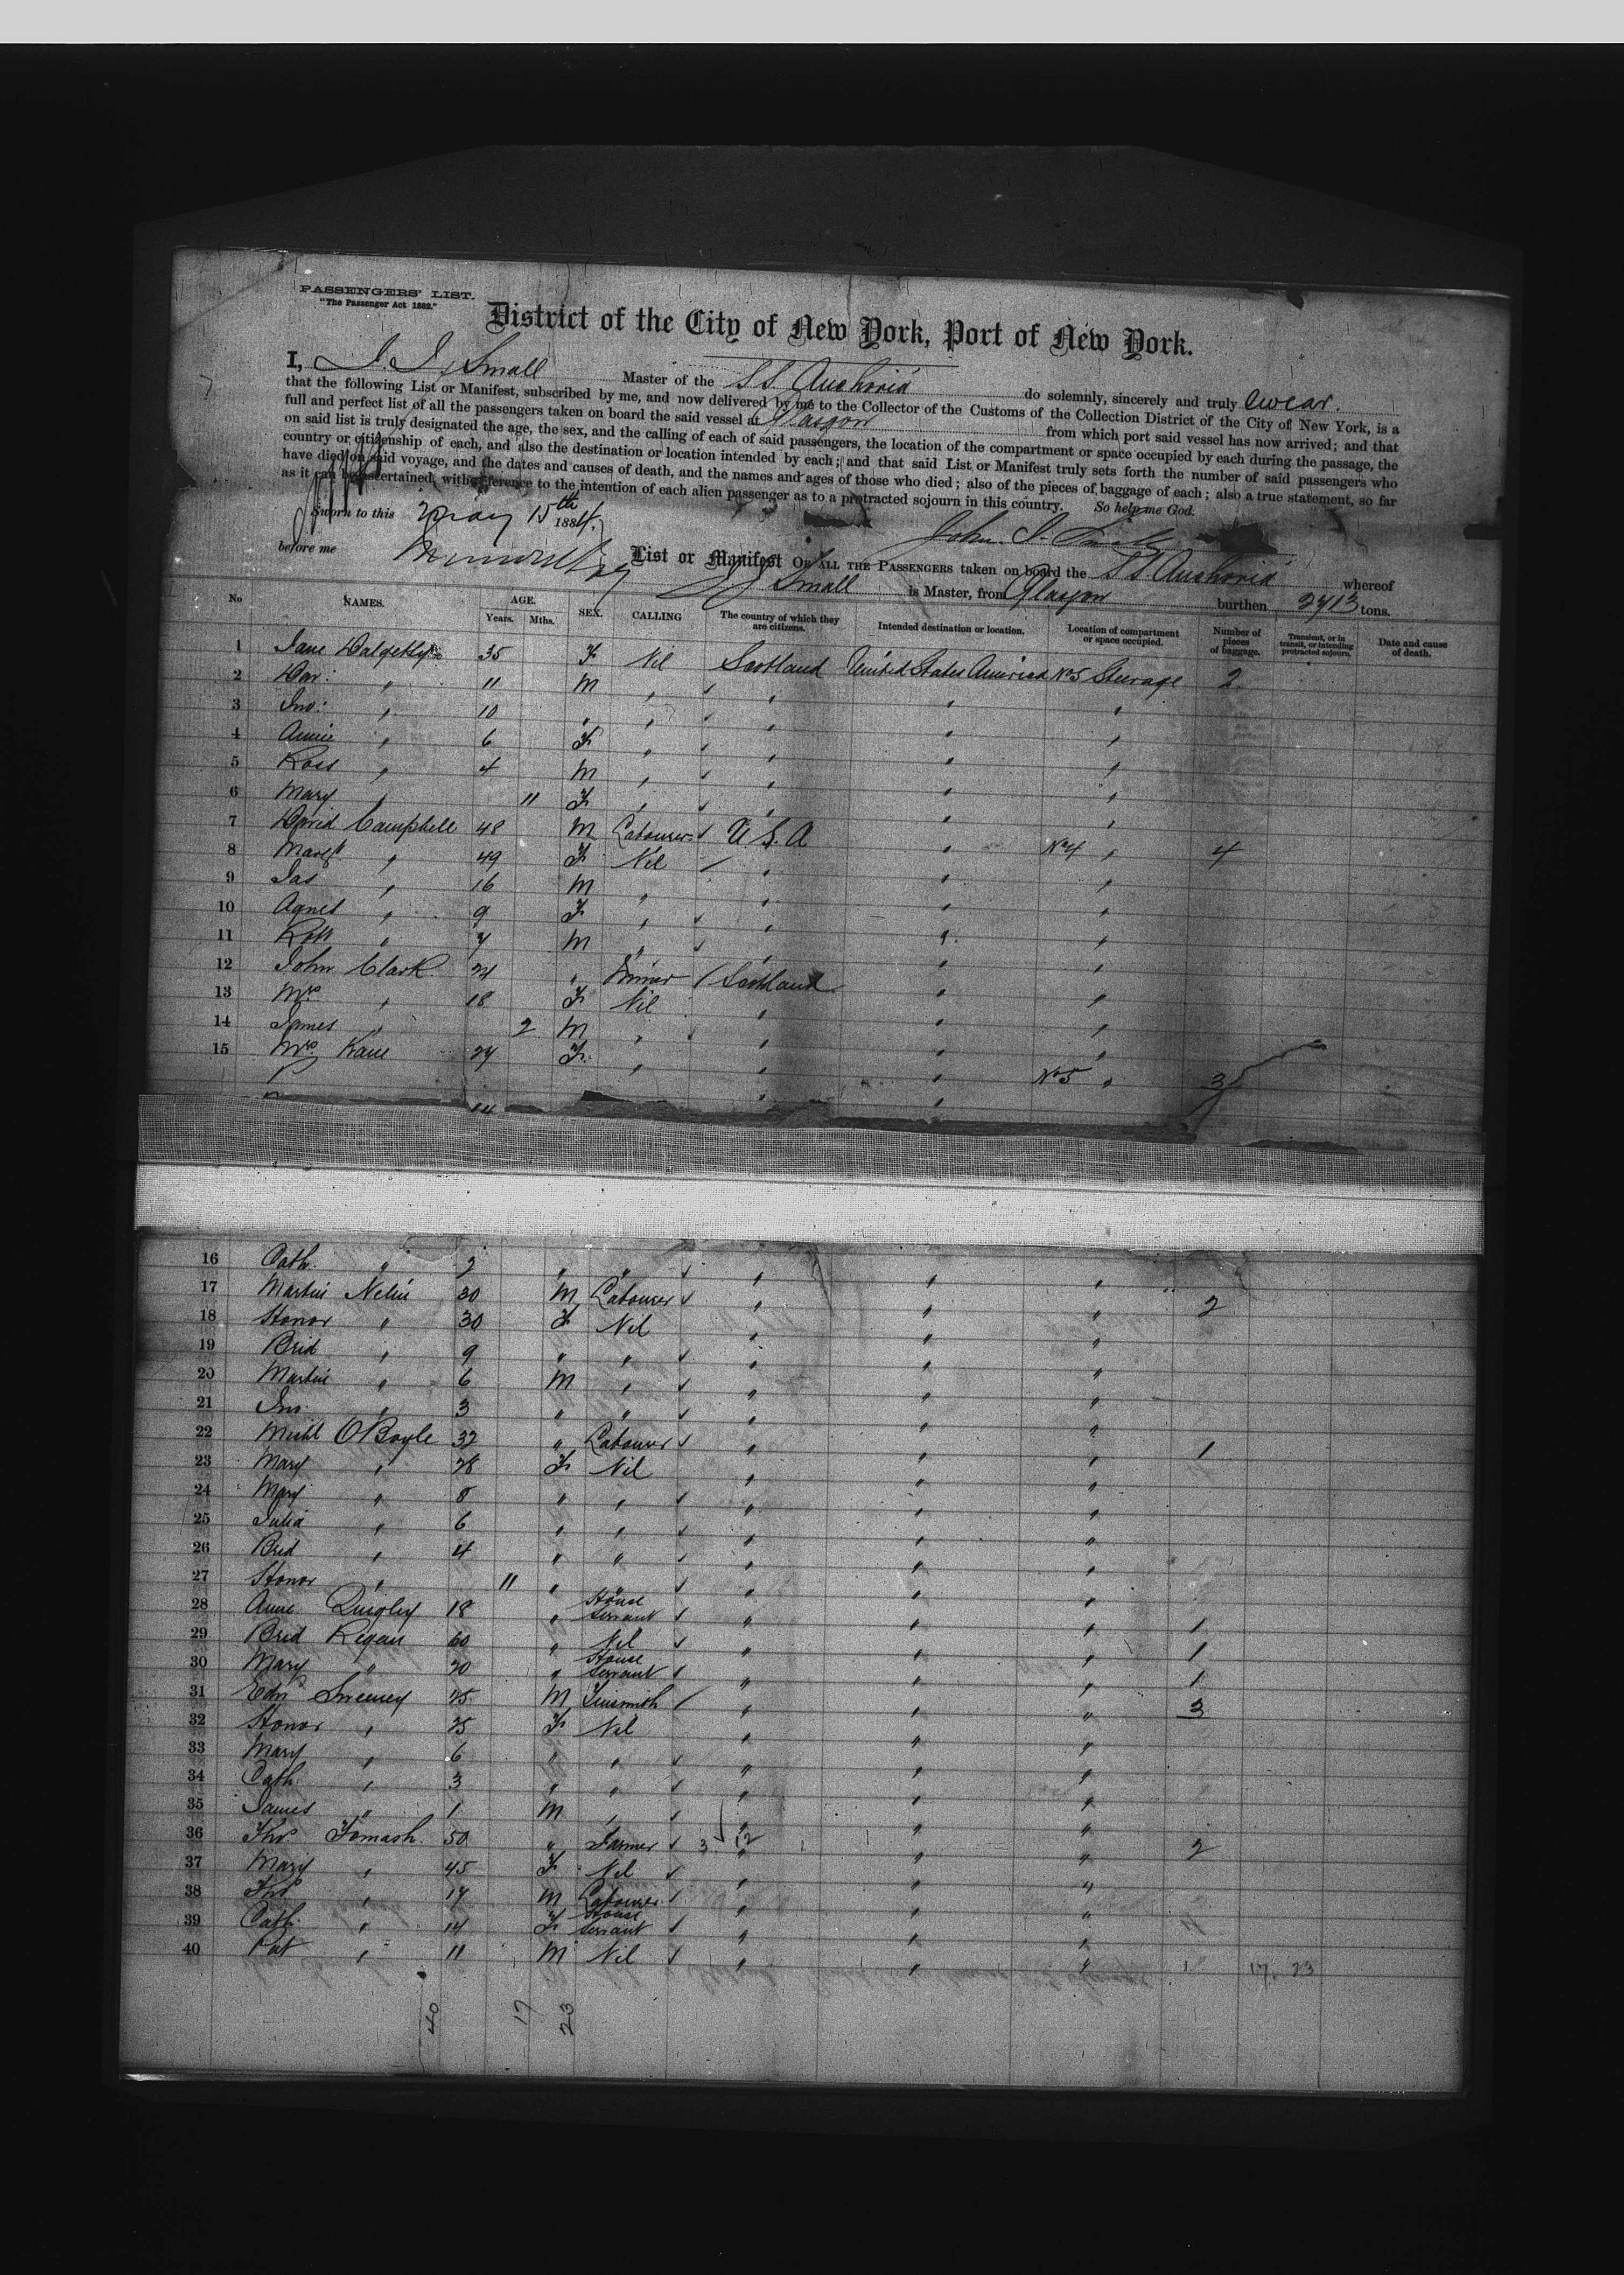 PASSENGERS' LIST.
"The Passenger Act 1882."
District of the City of New York, Port of New York.
I, J. J. Small Master of the S S. Anchoria do solemnly, sincerely and truly swear.
that the following List or Manifest, subscribed by me, and now delivered by me to the Collector of the Customs of the Collection District of the City of New York, is a
full and perfect list of all the passengers taken on board the said vessel at Glasgow from which port said vessel has now arrived; and that
on said list is truly designated the age, the sex, and the calling of each of said passengers, the location of the compartment or space occupied by each during the passage, the
country or citizenship of each, and also the destination or location intended by each; and that said List or Manifest truly sets forth the number of said passengers who
have died on said voyage, and the dates and causes of death, and the names and ages of those who died; also of the pieces of baggage of each; also a true statement, so far
as it can be ascertained, with reference to the intention of each alien passenger as to a protracted sojourn in this country. So help me God.
Sworn to this May 15th 1884.
John J. Small
before me
List or Manifest OF ALL THE PASSENGERS taken on board the S S. Anchoria whereof
J J Small is Master, from Glasgow burthen 2713 tons.
No NAMES. AGE. Years. Mths. SEX. CALLING The country of which they are citizens. Intended destination or location. Location of compartment or space occupied. Number of pieces of baggage. Transient, or in transit, or intending protracted sojourn. Date and cause of death.
1 Jane Dalgetty 35 F Nil Scotland United States America No 5 Steerage 2
2 Dav: " 11 M " " " "
3 Jno: " 10 " " " " "
4 Annie " 6 F " " " "
5 Ross " 4 M " " " "
6 Mary " 11 F " " " "
7 David Campbell 48 M Labourer U S. A " No 4 " 4
8 Margt " 49 F Nil " " "
9 Jas " 16 M " " " "
10 Agnes " 9 F " " " "
11 Robt " 7 M " " " "
12 John Clark 24 " Miner Scotland " "
13 Mrs " 18 F Nil " " "
14 James " 2 M " " " "
15 Mrs Kane 27 F " " " No 5 " 3
14
16 Cath. " 2 " " " " "
17 Martin Nelin 30 M Labourer " " " 2
18 Honor " 30 F Nil " " "
19 Brid " 9 " " " " "
20 Martin " 6 M " " " "
21 Jno. " 3 " " " " "
22 Michl O'Boyle 32 " Labourer " " " 1
23 Mary " 28 F Nil " " "
24 Mary " 8 " " " " "
25 Julia " 6 " " " " "
26 Brid " 4 " " " " "
27 Honor " 11 " " " " "
28 Anne Quigley 18 " House Servant " " " 1
29 Brid Regan 60 " Nil " " " 1
30 Mary " 20 " House Servant " " " 1
31 Edw Sweeney 25 M Tinsmith " " " 3
32 Honor " 25 F Nil " " "
33 Mary " 6 " " " " "
34 Cath. " 3 " " " " "
35 James " 1 M " " " "
36 Thos Tomash 50 " Farmer 3 12 " " " 2
37 Mary " 45 F Nil " " "
38 Thos " 17 M Labourer " " "
39 Cath. " 14 F House Servant " " "
40 Pat " 11 M Nil " " " 1 17. 23
40 17 23